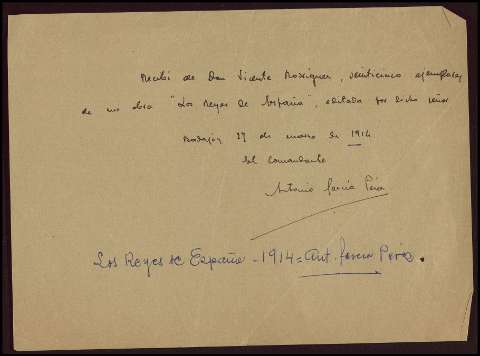 Recibí de Don Vicente Rodríguez, veinticinco ejemplares
de mi obra "Los Reyes de España", editada por dicho señor
Badajoz 17 de marzo de 1914
El Comandante
Antonio García Pérez
Los Reyes de España - 1914 = Ant. García Pérez.